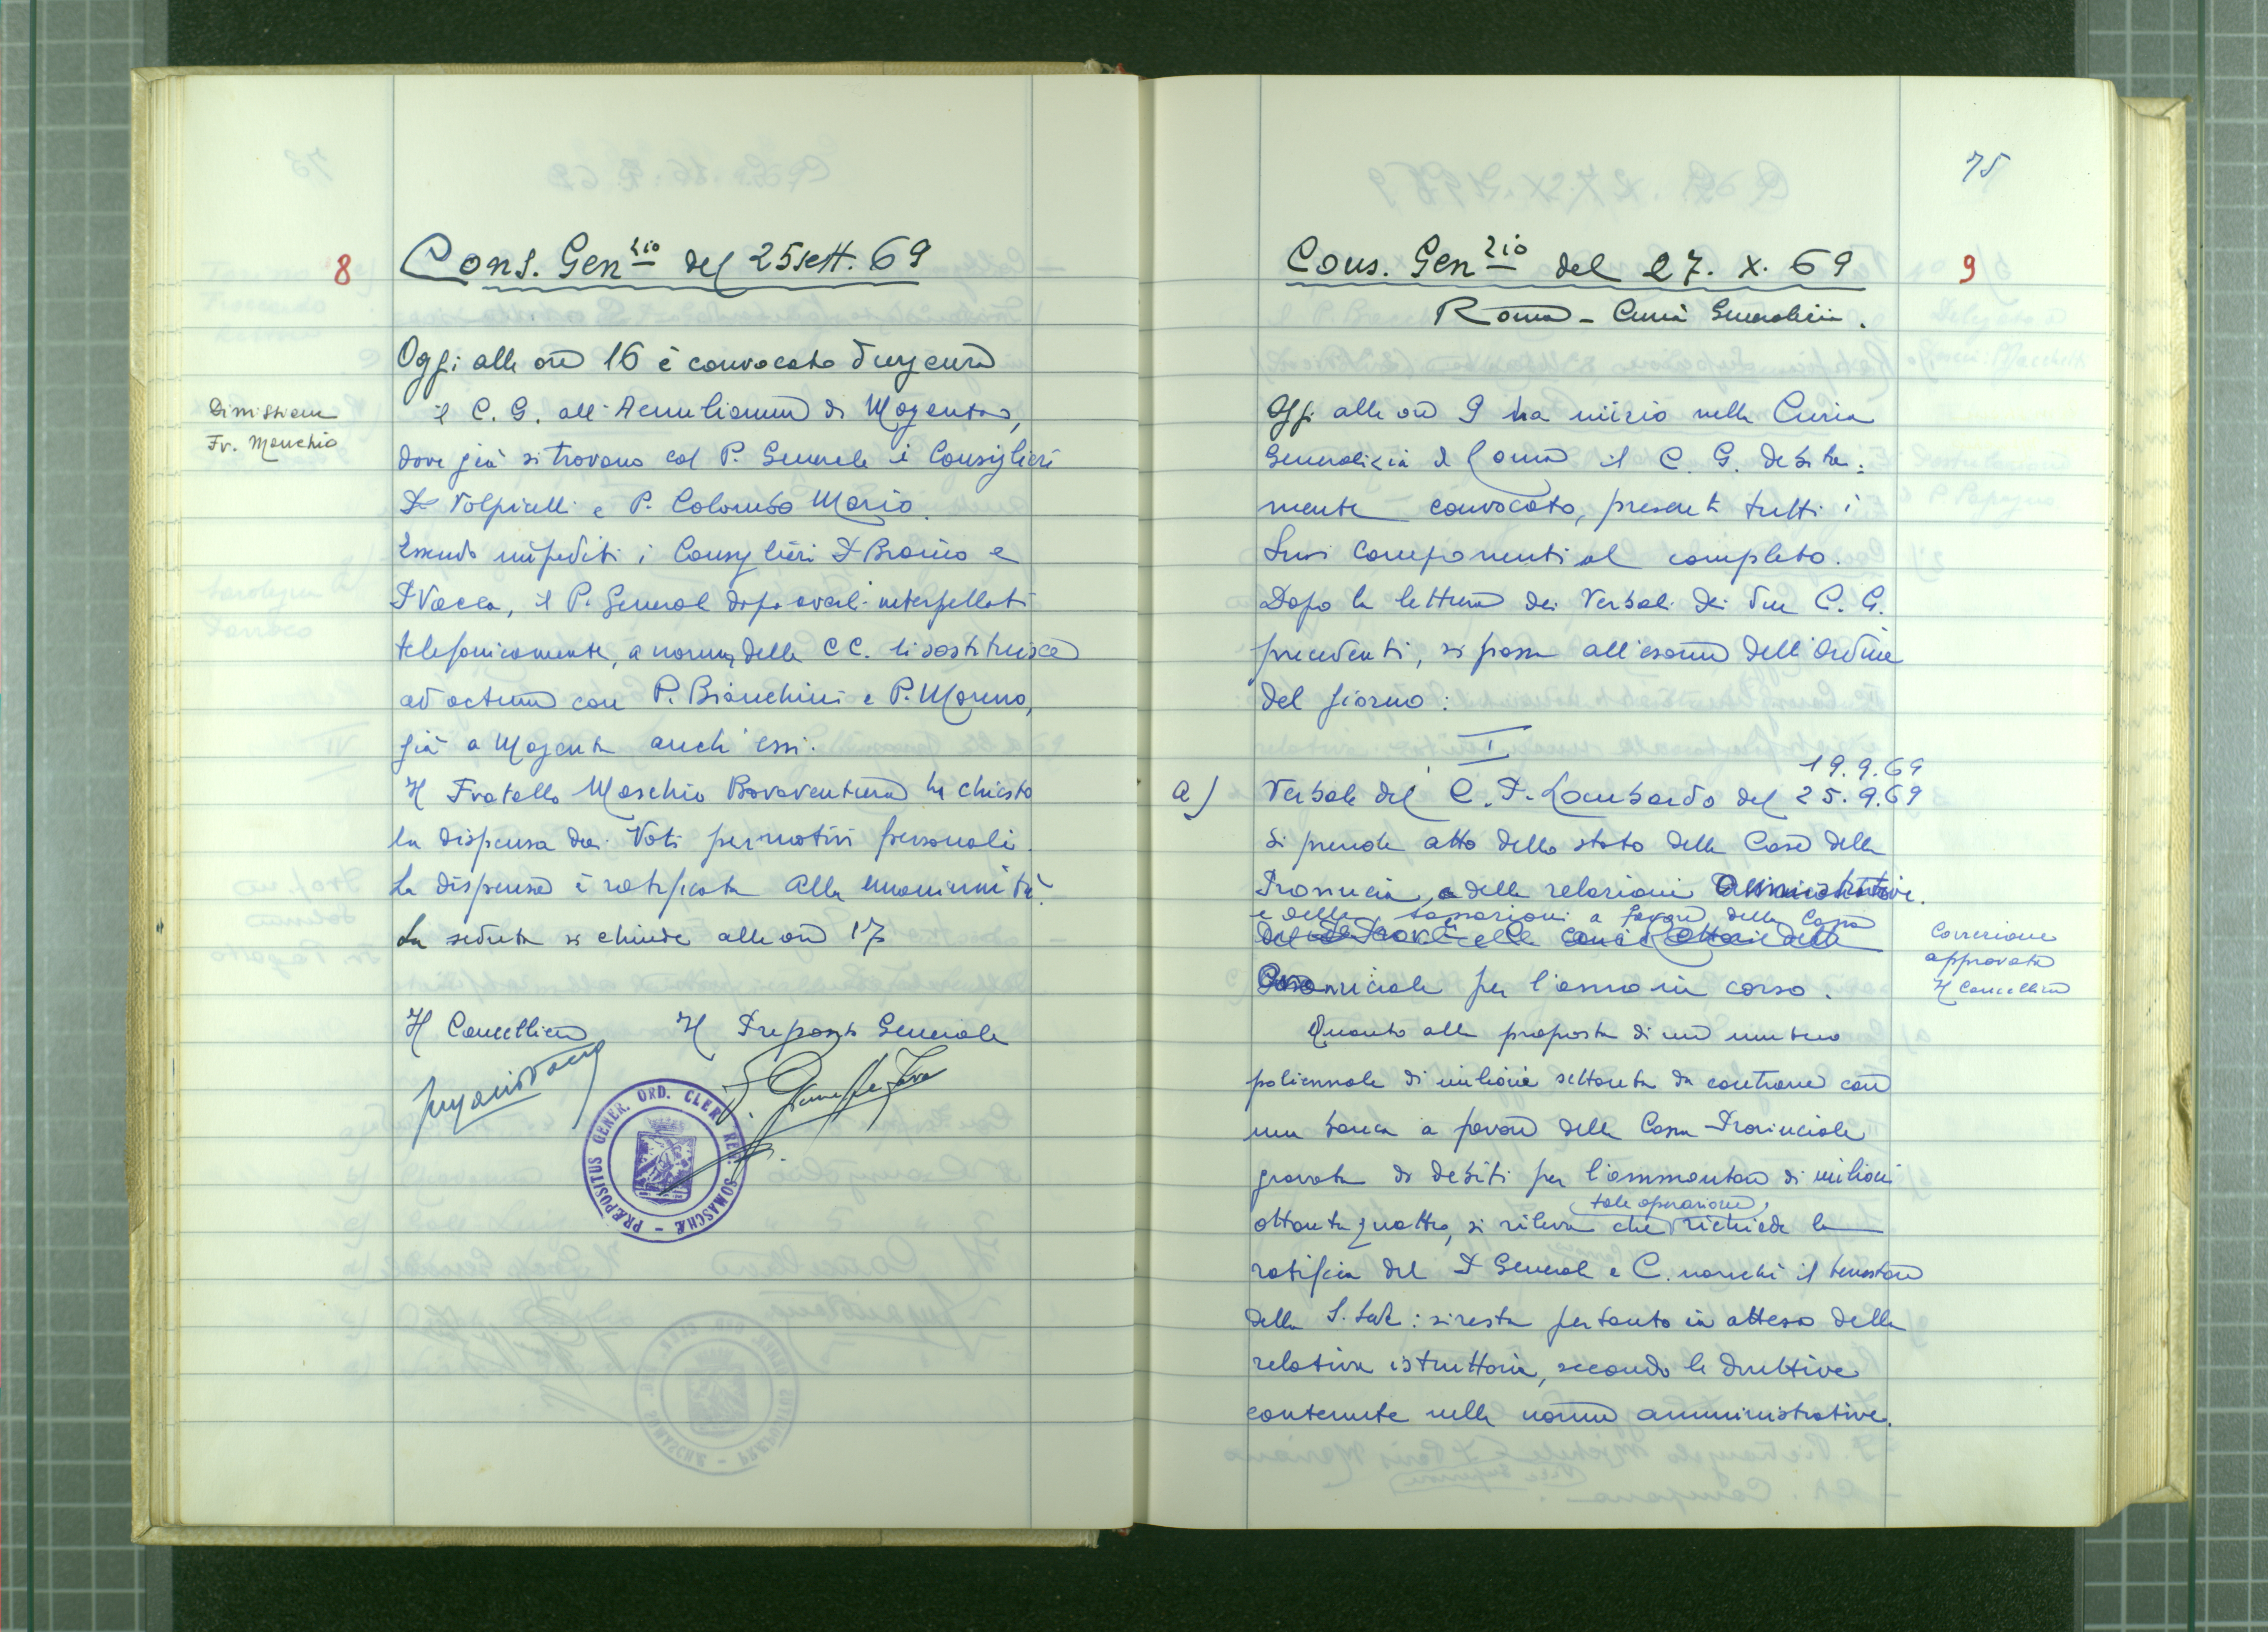 8
Cons. Gen.zio del 25 sett. 69
Dimissioni
Fr. Maschio
Oggi alle ore 16 è convocato d'urgenza
il C. G. all'Aemilianum di Magenta,
dove già si trovano col P. Generale i Consiglieri
P. Volpicelli e P. Colombo Mario.
Essendo impediti i Consiglieri P. Brasio e
P. Vacca, il P. General dopo averli interpellati
telefonicamente, a norma delle CC. li sostituisce
ad actum con P. Bianchini e P. Moreno,
già a Magenta anch'essi.
Il Fratello Maschio Bonaventura ha chiesto
la dispensa dai Voti per motivi personali.
La dispensa è ratificata alla unanimità.
La seduta si chiude alle ore 17
Il Cancelliere Il Preposto Generale
PRÆPOSITUS GENER. ORD. CLER. REG. SOMASCHÆ
75
Cons. Gen.zio del 27. X. 69
9
Roma - Curia Generalizia.
Oggi alle ore 9 ha inizio nella Curia
Generalizia di Roma il C. G. debita=
mente convocato, presenti tutti i
suoi componenti al completo.
Dopo la lettura dei Verbali dei due C. G.
precedenti, si passa all'esame dell'Ordine
del giorno:
I
19.9.69
a) Verbale del C. P. Lombardo del 25.9.69
Si prende atto dello stato delle Case della
Provincia, e delle relazioni Amministrative.
e delle tassazioni a favore della Cassa
Provinciale per l'anno in corso.
Correzione
approvata
Il Cancelliere
Quanto alla proposta di un mutuo
poliennale di milioni settanta da contrarre con
una banca a favore della Cassa Provinciale
gravata di debiti per l'ammontare di milioni
ottantaquattro, si rileva che tale operazione richiede la
ratifica del P. General e C. nonché il benestare
della S. Sede: si resta pertanto in attesa della
relativa istruttoria, secondo le direttive
contenute nelle norme amministrative.